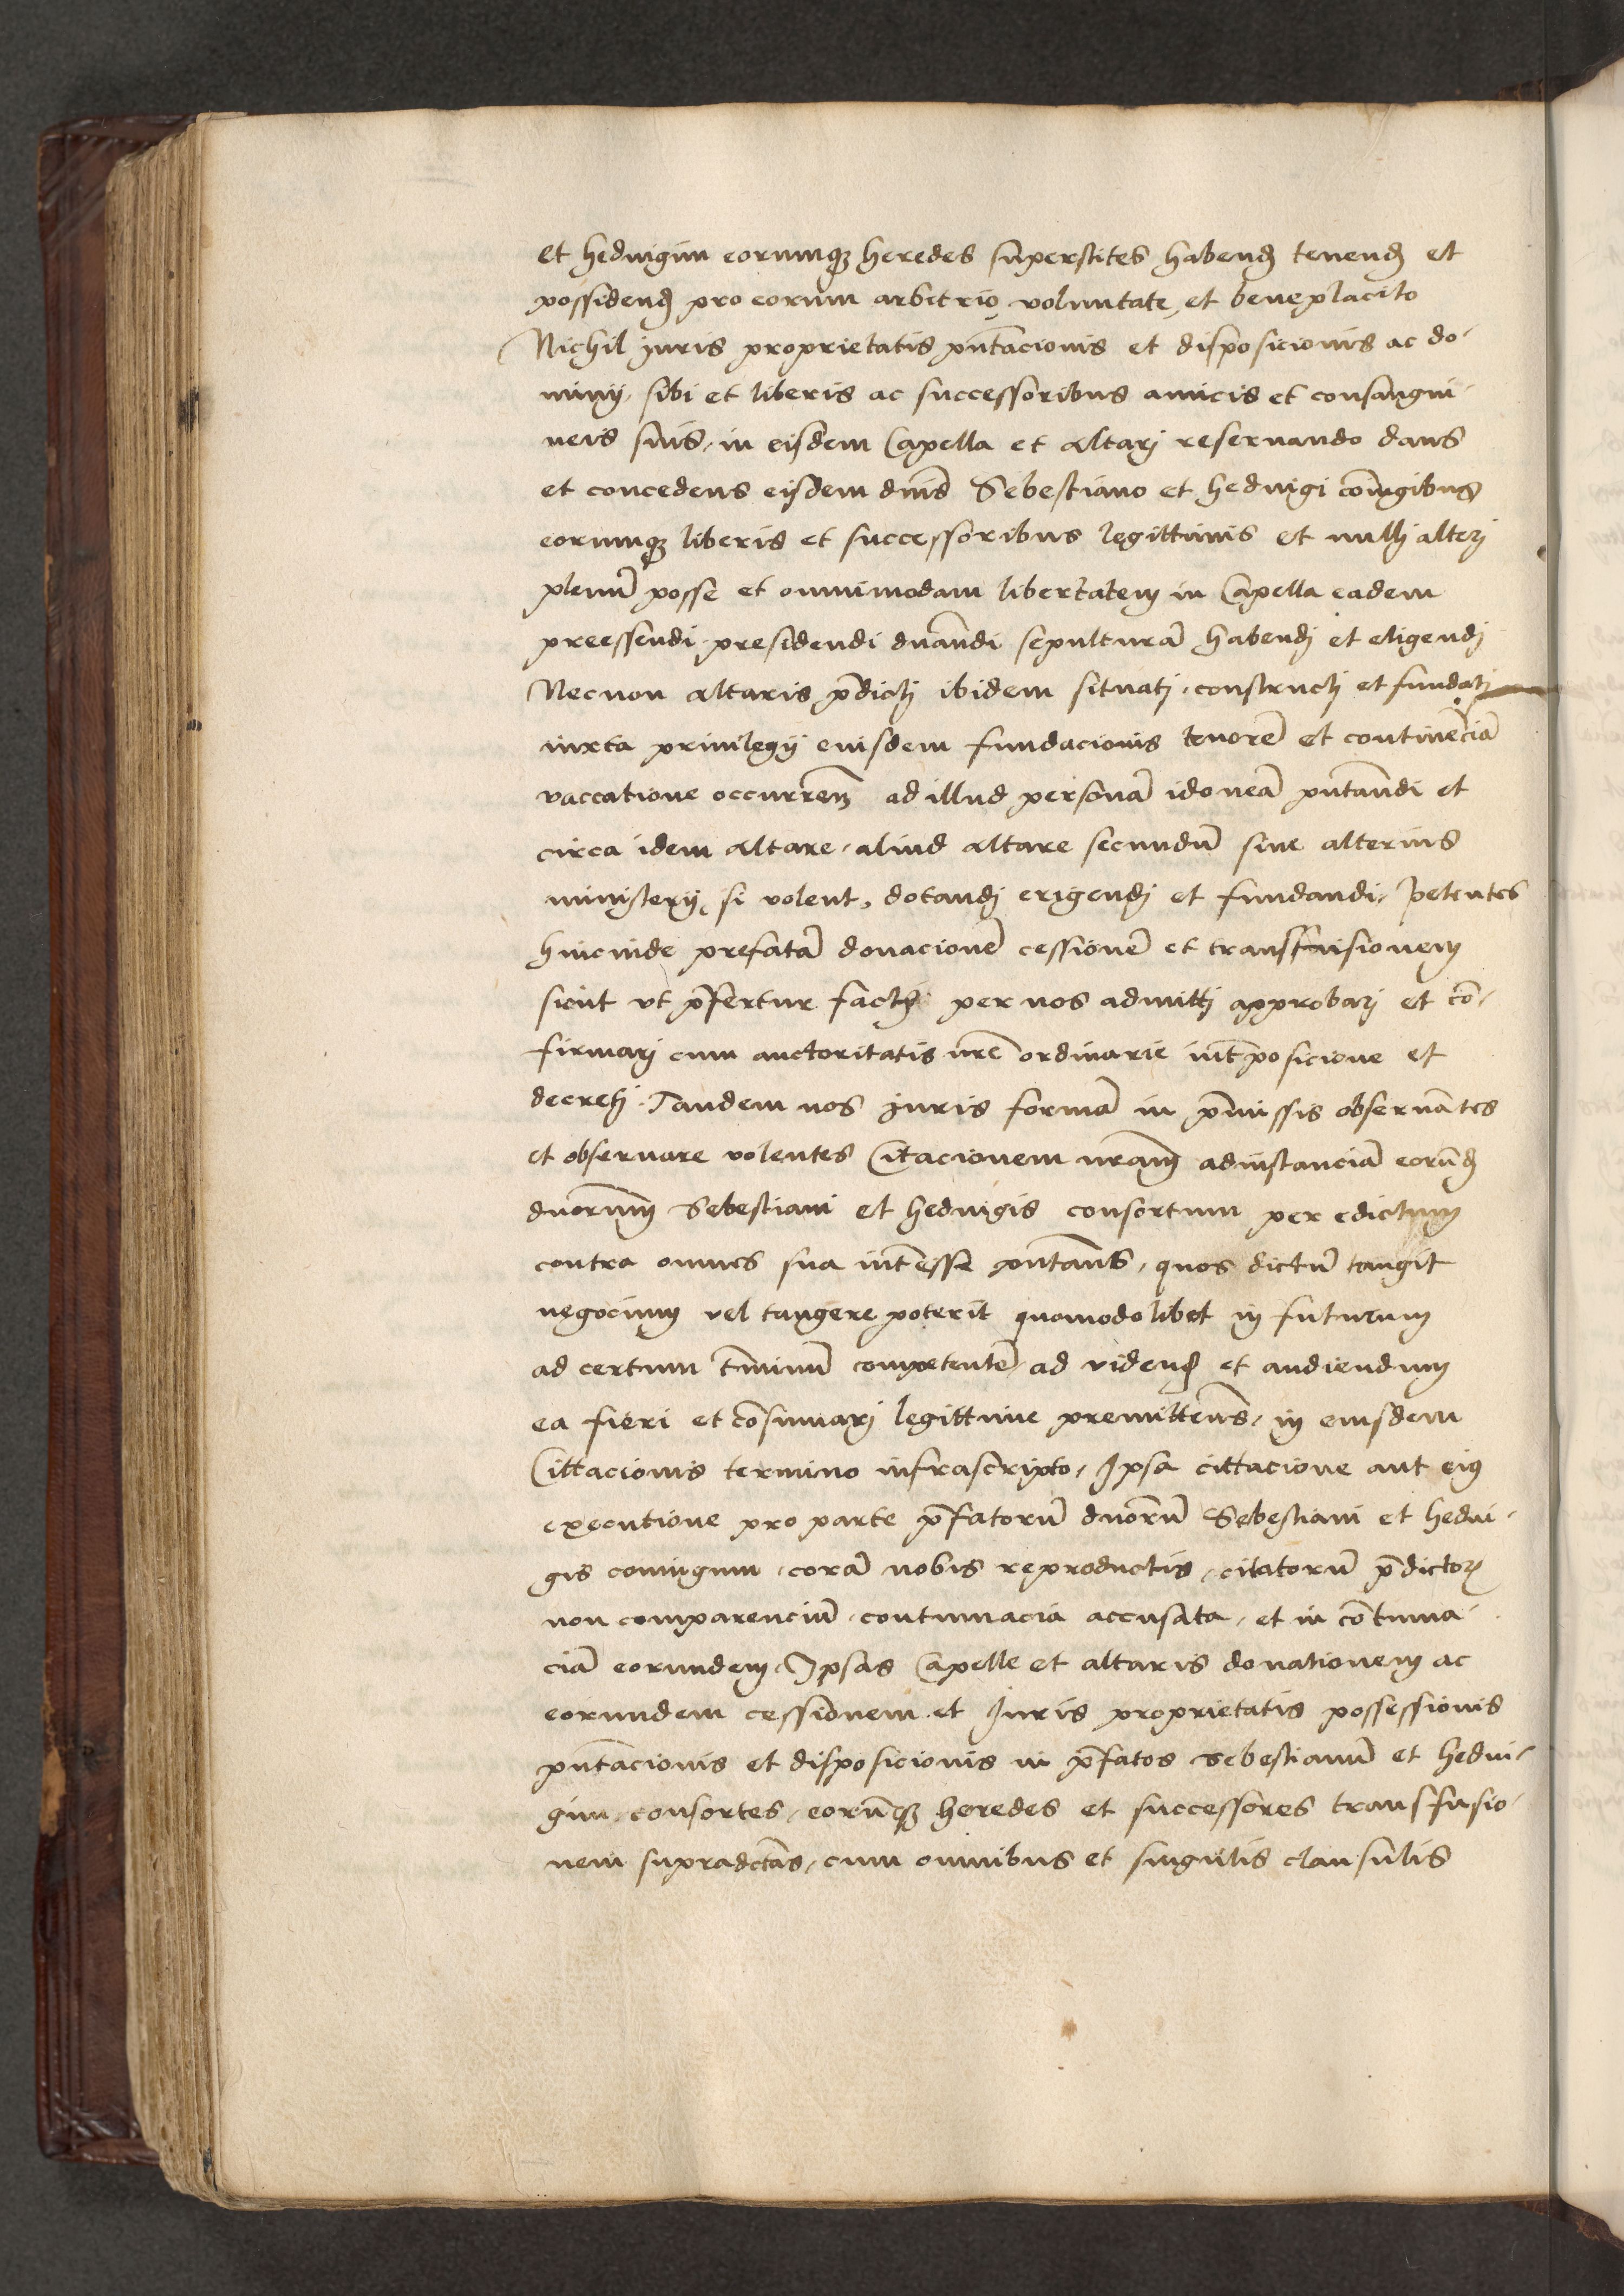 et hedvigim eorumqꝫ heredes superstites habenḍ tenenḍ et
possidenḍ pro eorum arbitrio voluntate, et beneplacito
Nichil iuris proprietatis pn̄tacionis et disposicionis ac do-
minij, sibi et liberis ac successoribus amicis et consangui-
neis suis, in eisdem Capella et altari reseruando dans
et concedens eisdem dn̄is Sebestiano et hedvigi cōiugibus
eorumqꝫ liberis et successoribus legittimis et nulli alteri
plenū posse et omnimodam libertatem in Capella eadem
preessendi, presidendi dn̄andi sepulturā habendi et eligendi
Necnon altaris p̄dicti ibidem situati, constructi et fundati
iuxta priuilegij eiusdem fundacionis tenorē et continēciā
vaccatione occurren̄ ad illud personā idoneā pn̄tandi et
circa idem altare, aliud altare secundū siue alterius
ministerij, si volent, dotandi erigendi et fundandi, petentes
hincinde prefatā donacionē cessionē et transfusionem
sicut vt p̄fertur fact̄ per nos admitti approbari et cō-
firmari cum auctoritatis nr̄e ordinarie int̄posicione et
decreti. Tandem nos iuris formā in p̄missis obseruātes
et obseruare volentes Citacionem nr̄am adinstanciā eorūḍ
dn̄orum Sebestiani et hedvigis consortum per edictum
contra omnes sua int̄esse putan̄s, quos dictū tangit
negocium vel tangere poterit quomodolibet in futurum
ad certum t̄minū competentē, ad videnḍ et audiendum
ea fieri et cōsumari legittime premitten̄s, in eiusdem
Cittacionis termino infrascripto, Ipsa cittacione aut eius
executione pro parte p̄fatorū dn̄orū Sebestiani et hedui-
gis coniugum, corā nobis reproductis, citatorū p̄dictoꝝ
non comparenciū, contumacia accusata, et in cōtuma-
ciā eorundem, Ipsas Capelle et altaris donationem ac
eorundem cessionem et Iuris proprietatis possessionis
pn̄tacionis et disposicionis in p̄fatos Sebestianū et hedui-
gim, consortes, eorūqꝫ heredes et successores transfusio-
nem supradc̄tas, cum omnibus et singulis clausulis